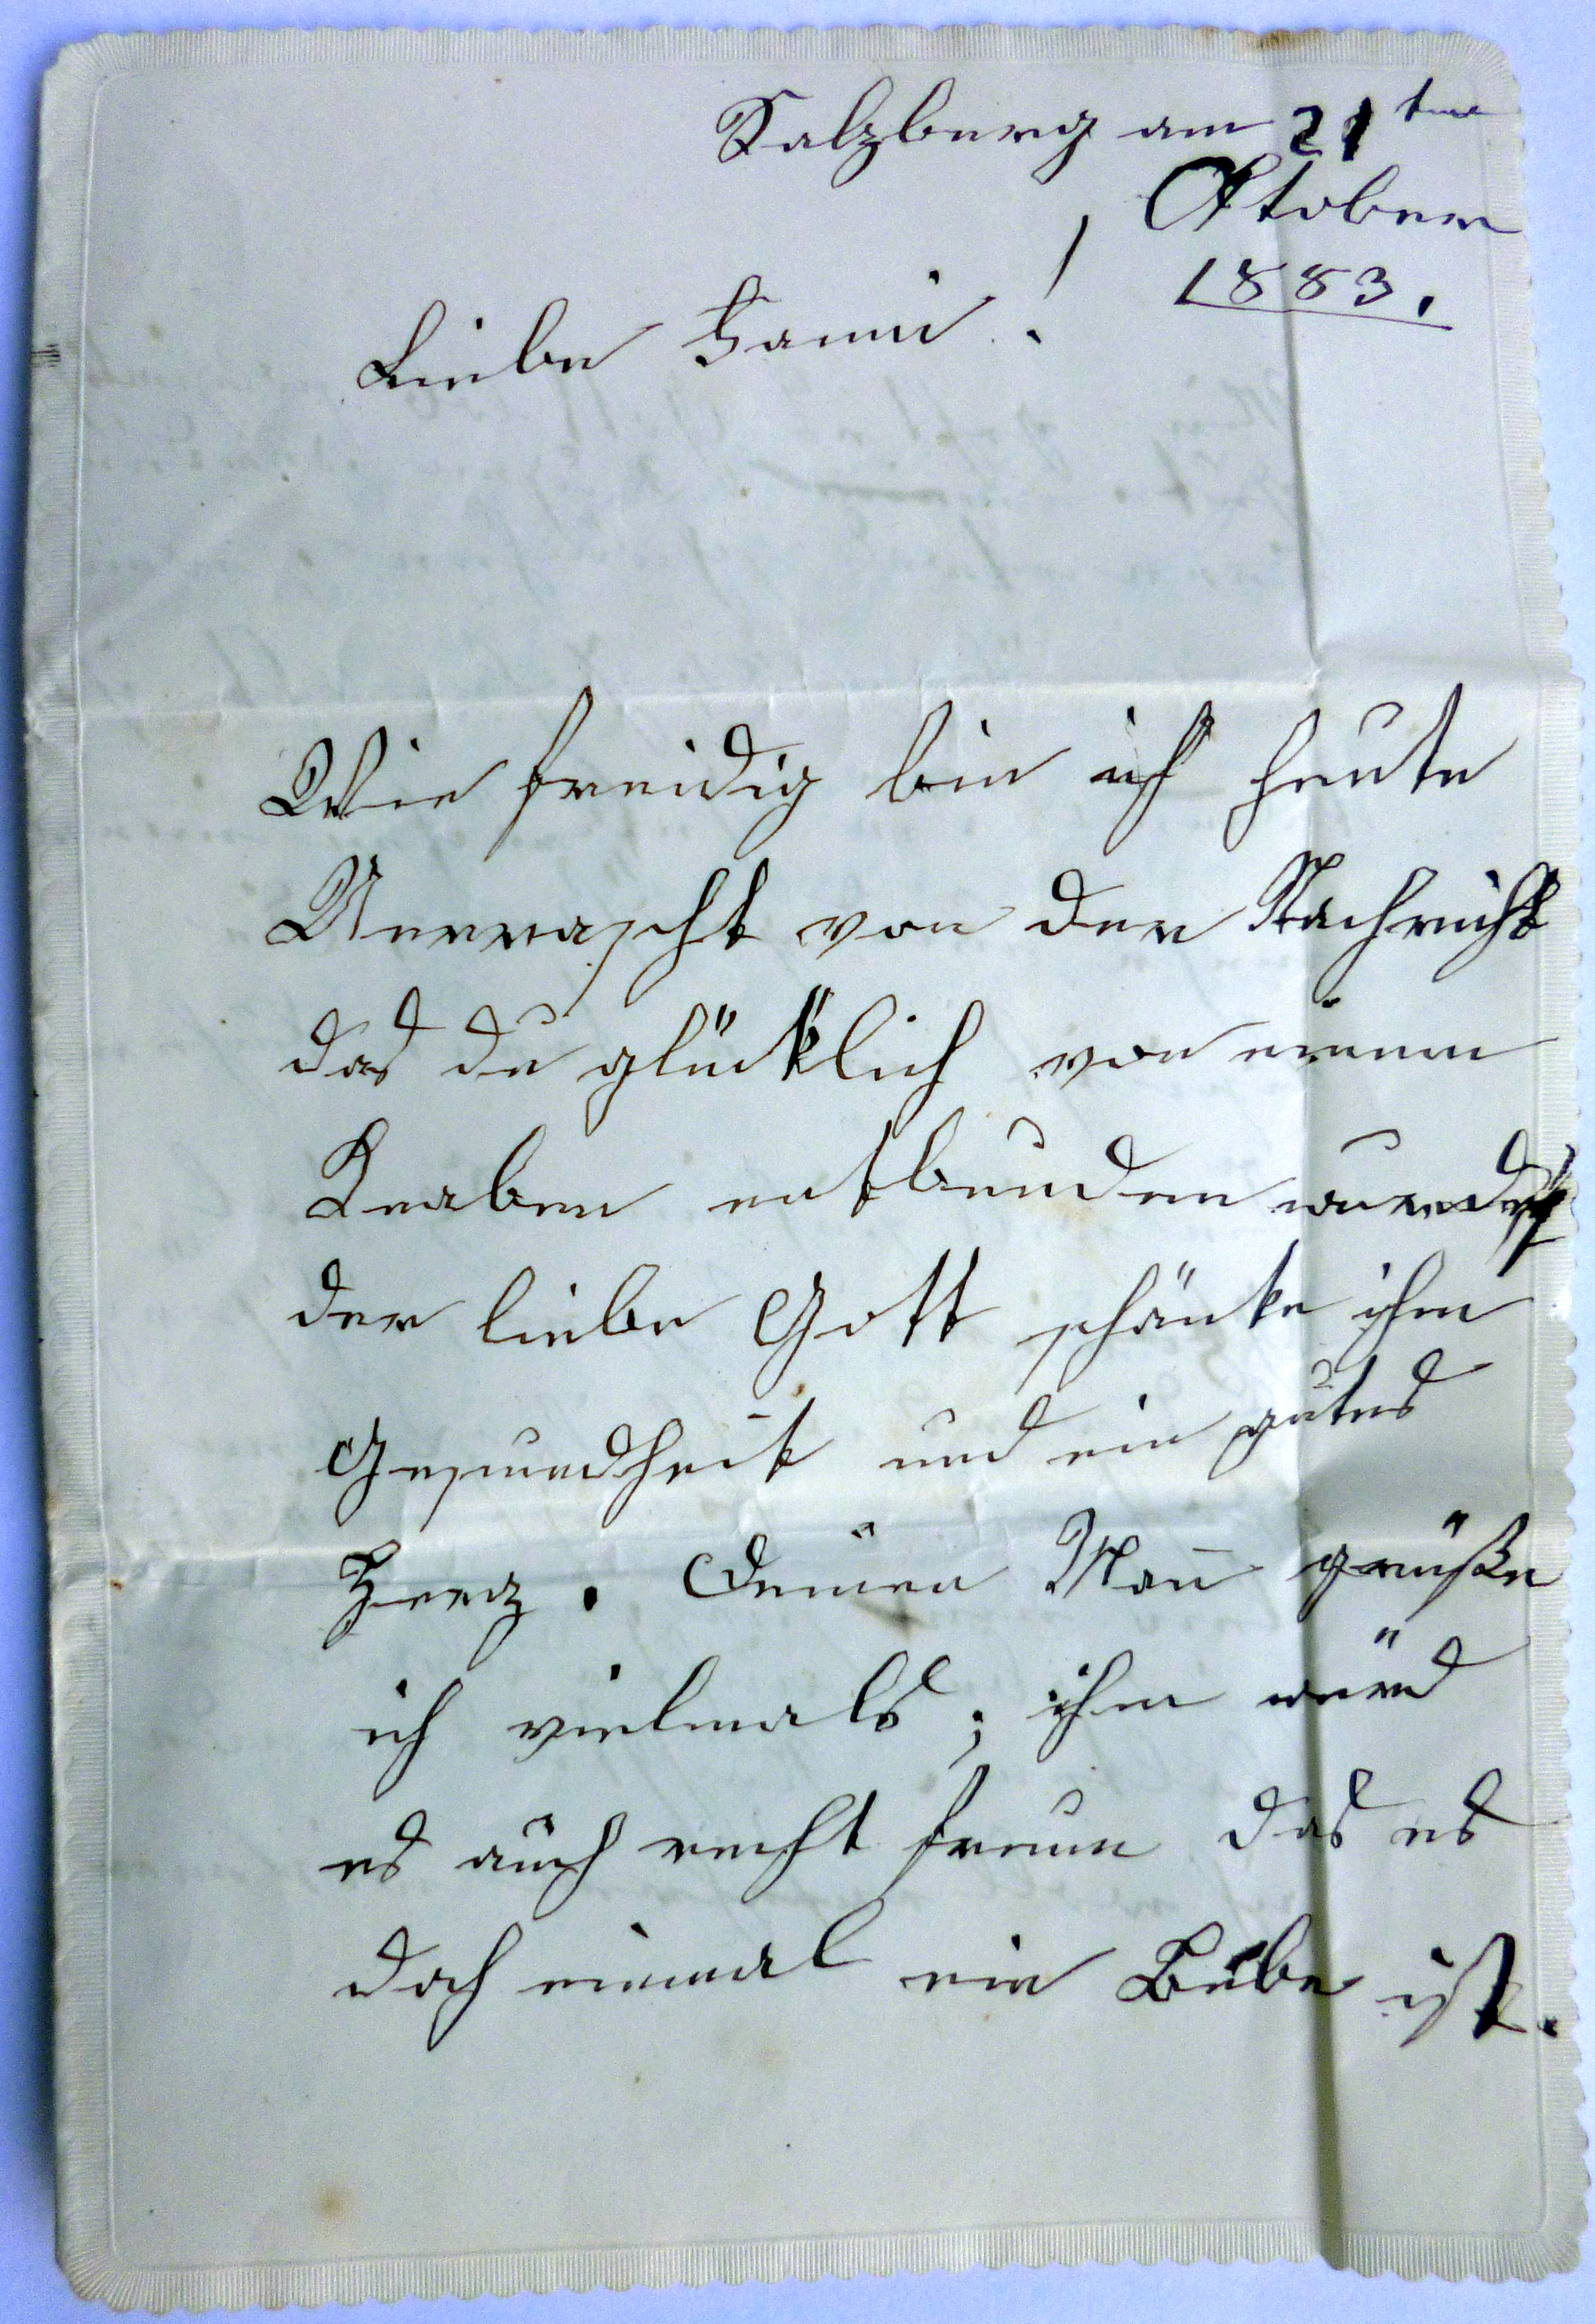 Salzburg am 21ten
Oktober
1883.
Liebe Fanni!
Wie freidig bin ich heute
Überrascht von der Nachricht
das du glücklich von einem
Knaben entbunden wurdest
der liebe Gott schänke ihm
Gesundheit und ein gutes
Herz. Deinen Mañ grüße
ich vielmals; ihm würd
es auch recht freuen das es
doch einmal ein Bube ist.